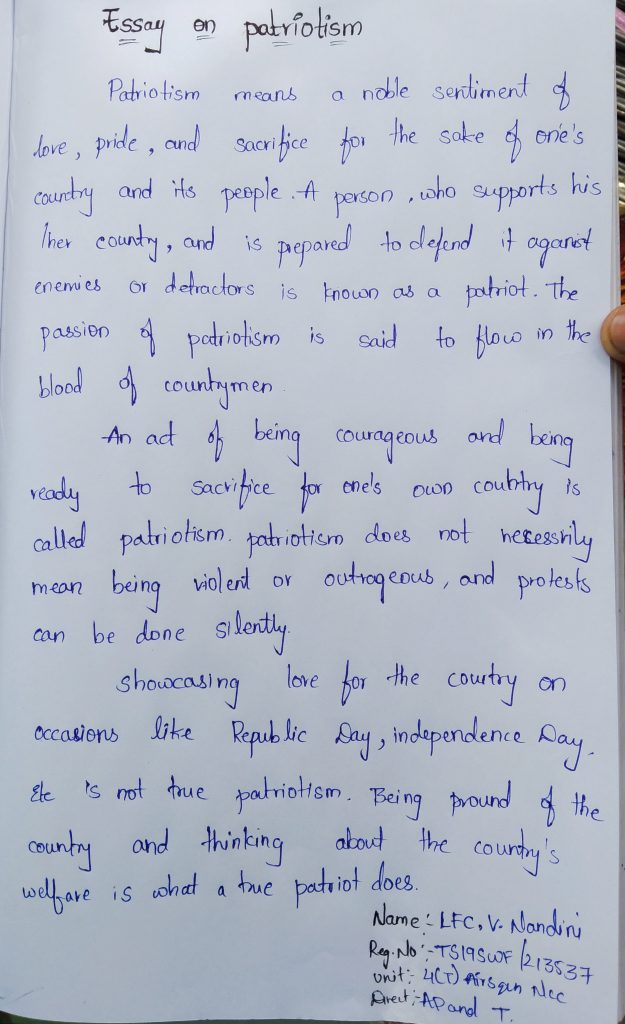 Essay on patriotism
Patriotism means a noble sentiment of
love, pride, and sacrifice for the sake of one's
country and its people. A person, who supports his
/her country, and is prepared to defend it aganist
enemies or detractors is known as a patriot. The
passion of patriotism is said to flow in the
blood of countrymen.
An act of being courageous and being
ready to sacrifice for one's own country is
called patriotism. patriotism does not necessrily
mean being violent or outrageous, and protests
can be done silently.
showcasing love for the coutry on
occasions like Republic Day, independence Day.
Etc is not true patriotism. Being pround of the
country and thinking about the country's
welfare is what a true patriot does.
Name:- LFC, V. Nandini
Reg.No:-TS19SWF/213537
unit:- 4(T) Airsqn Ncc
Direct:-AP and T.